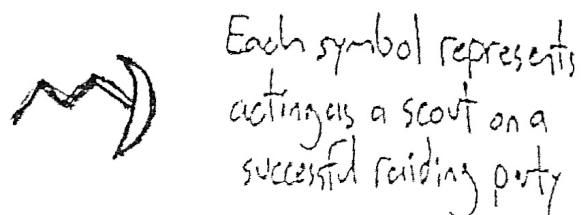 Each symbol represents
acting as a scout on a
successful raiding party